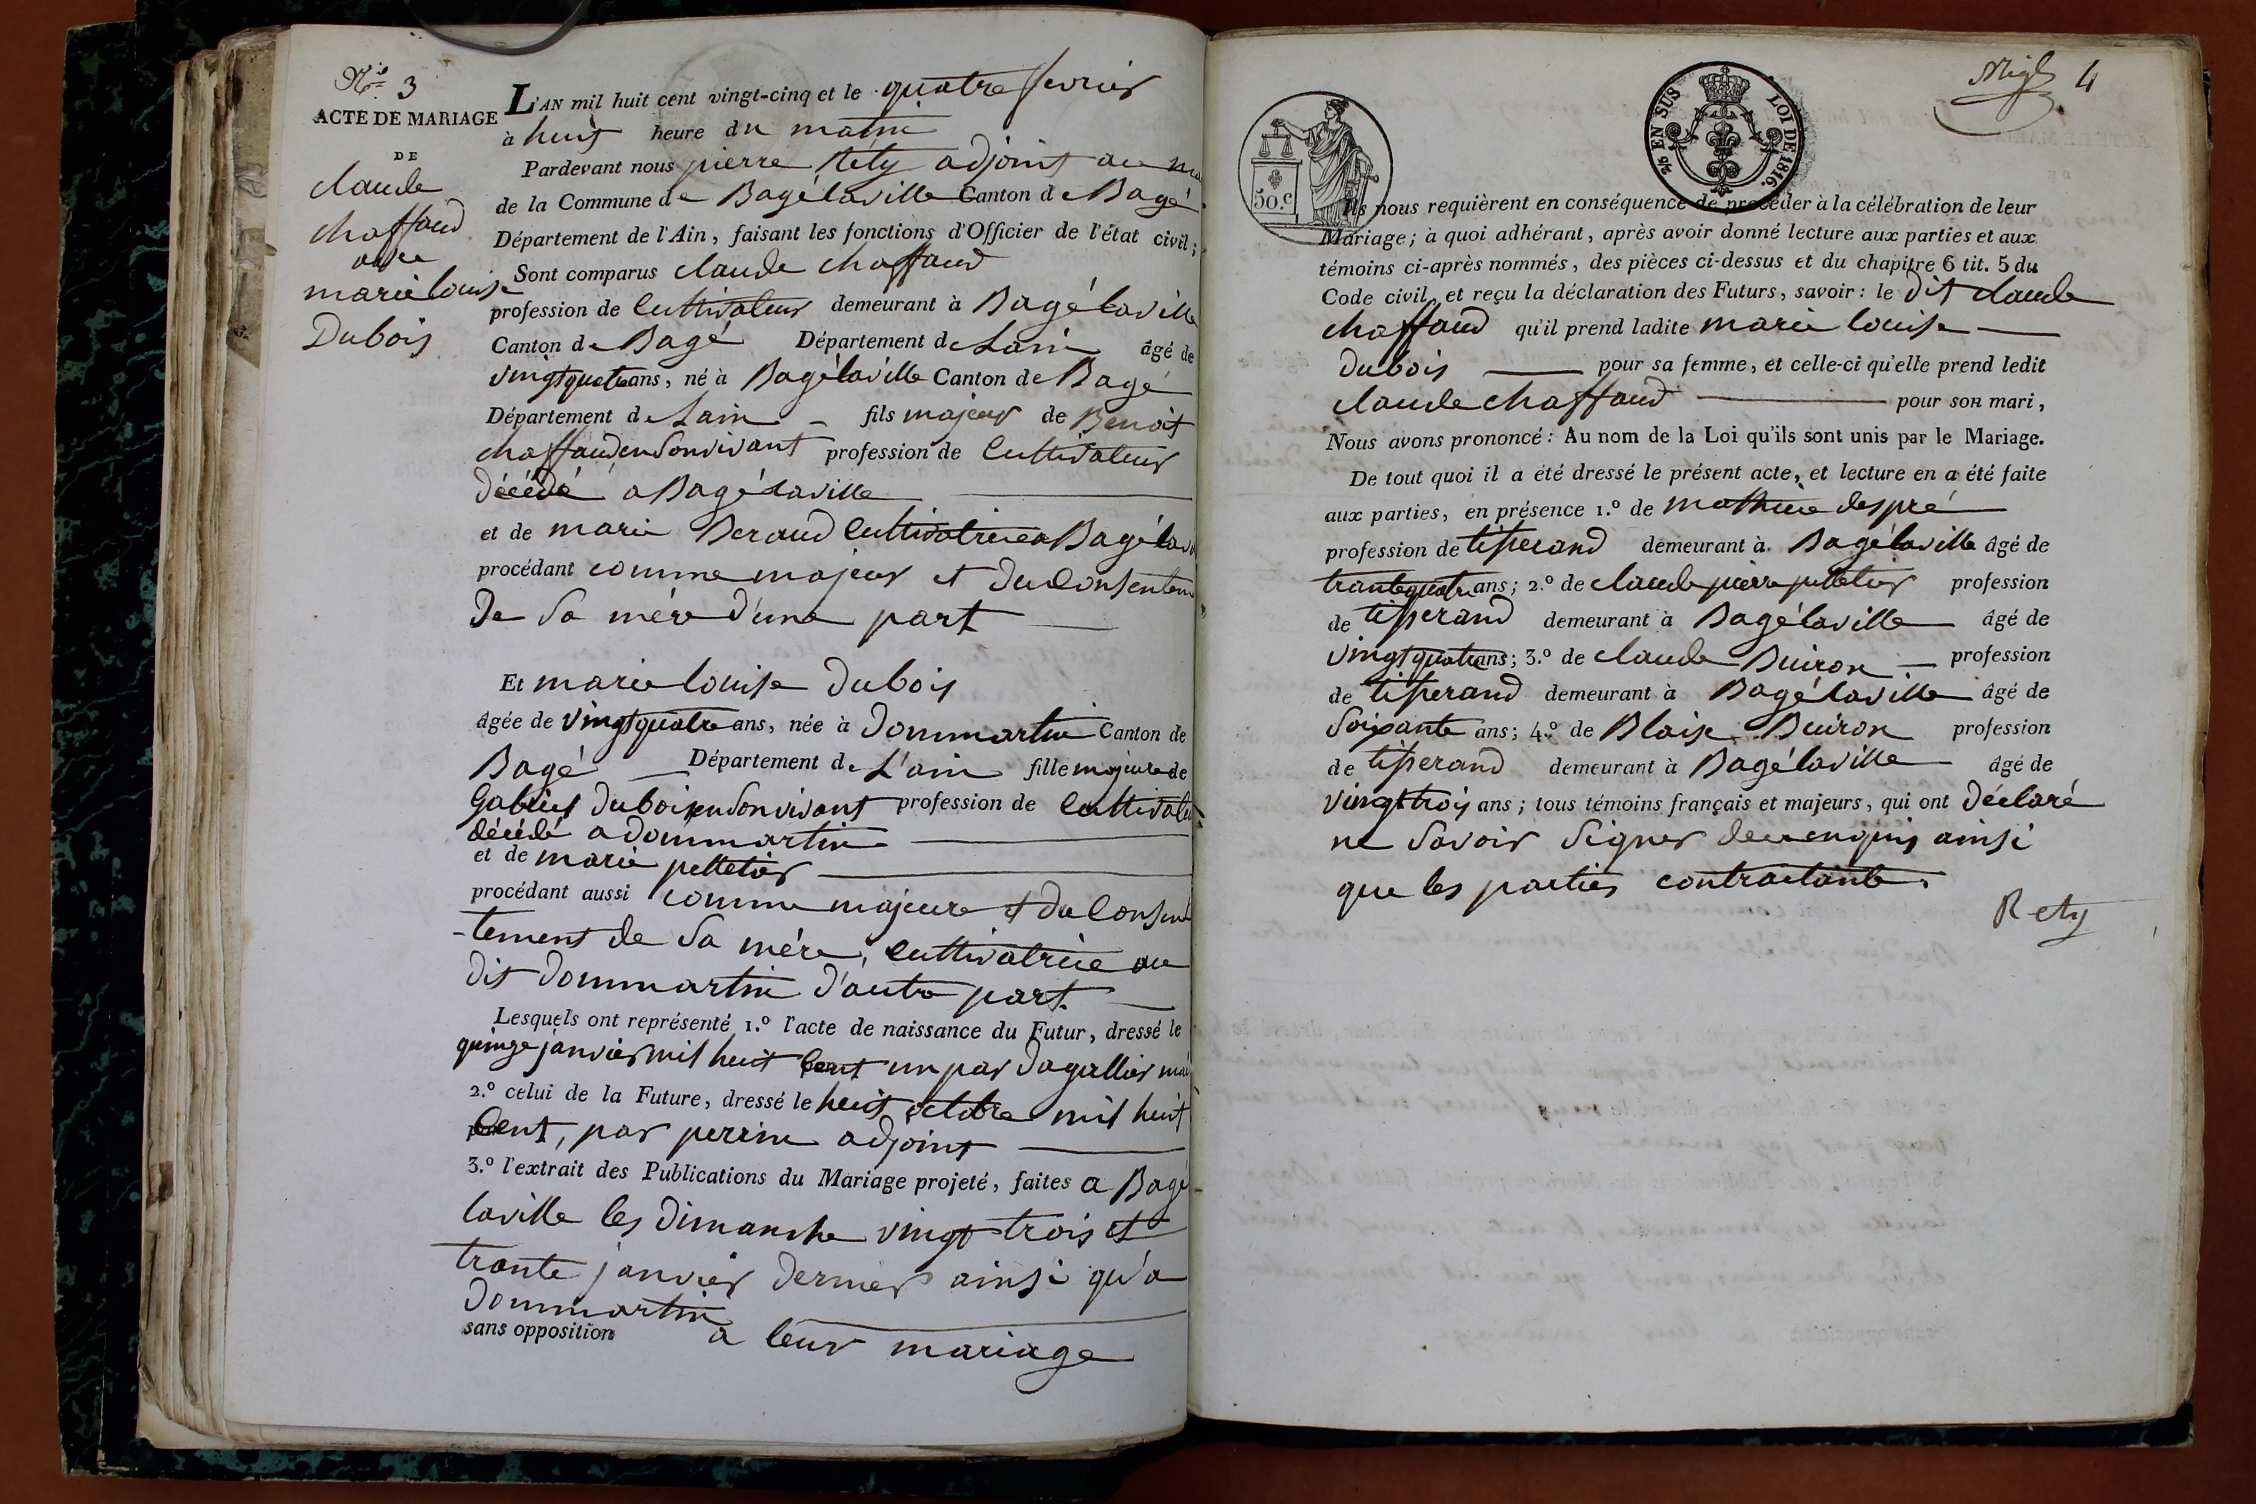 N.º 3
ACTE DE MARIAGE
DE
claude
chaffaud
avec
marie louise
Dubois
L'AN mil huit cent vingt-cinq et le quatre fevrier
à huit heure du matin
Pardevant nous pierre Réty adjoint au
de la Commune de Bagélaville Canton de Bagé
Département de l'Ain, faisant les fonctions d'Officier de l'état civil;
Sont comparus claude chaffaud
profession de cultivateur demeurant à Bagélaville
Canton de Bagé Département de Lain âgé de
vingtquatre ans, né à Bagélaville Canton de Bagé
Département de Lain fils majeur de Benoit
chaffaud en son vivant profession de cultivateur
décédé a Bagélaville
et de marie Beraud cultivatrice a Bagélav
procédant comme majeur et du consentem
de sa mére d'une part
Et marie louise Dubois
âgée de vingtquatre ans, née à Dommartin Canton de
Bagé Département de L'ain fille majeure de
Gabriel Dubois en son vivant profession de cultivateu
décédé a dommartin
et de marie pelletier
procédant aussi comme majeure et du consen
-tement de sa mére, cultivatrice au
dit dommartin d'autre part
Lesquels ont représenté 1.º l'acte de naissance du Futur, dressé le
quinze janvier mil huit cent un par Dagallier mai
2.º celui de la Future, dressé le huit octobre mil huit
cent, par perrin adjoint
3.º l'extrait des Publications du Mariage projeté, faites a Bagé
laville les dimanche vingt trois et
trante janvier dernier ainsi qu'a
dommartin
sans opposition a leur mariage
50.c
2/6 EN SUS LOI DE 1816.
4
Ils nous requièrent en conséquence de procéder à la célébration de leur
Mariage; à quoi adhérant, après avoir donné lecture aux parties et aux
témoins ci-après nommés, des pièces ci-dessus et du chapitre 6 tit. 5 du
Code civil, et reçu la déclaration des Futurs, savoir: le dit claude
chaffaud qu'il prend ladite marie louise
dubois pour sa femme, et celle-ci qu'elle prend ledit
claude chaffaud pour son mari,
Nous avons prononcé: Au nom de la Loi qu'ils sont unis par le Mariage.
De tout quoi il a été dressé le présent acte, et lecture en a été faite
aux parties, en présence 1.º de mathieu despré
profession de tisserand demeurant à Bagélaville âgé de
trantequatre ans; 2.º de claude pierre pelletier profession
de tisserand demeurant à Bagélaville âgé de
vingtquatre ans; 3.º de claude Buiron profession
de tisserand demeurant à Bagélaville âgé de
soixante ans; 4.º de Blaise Buiron profession
de tisserand demeurant à Bagélaville âgé de
vingttrois ans; tous témoins français et majeurs, qui ont déclaré
ne savoir signer de ce enquis ainsi
que les parties contractante.
Rety